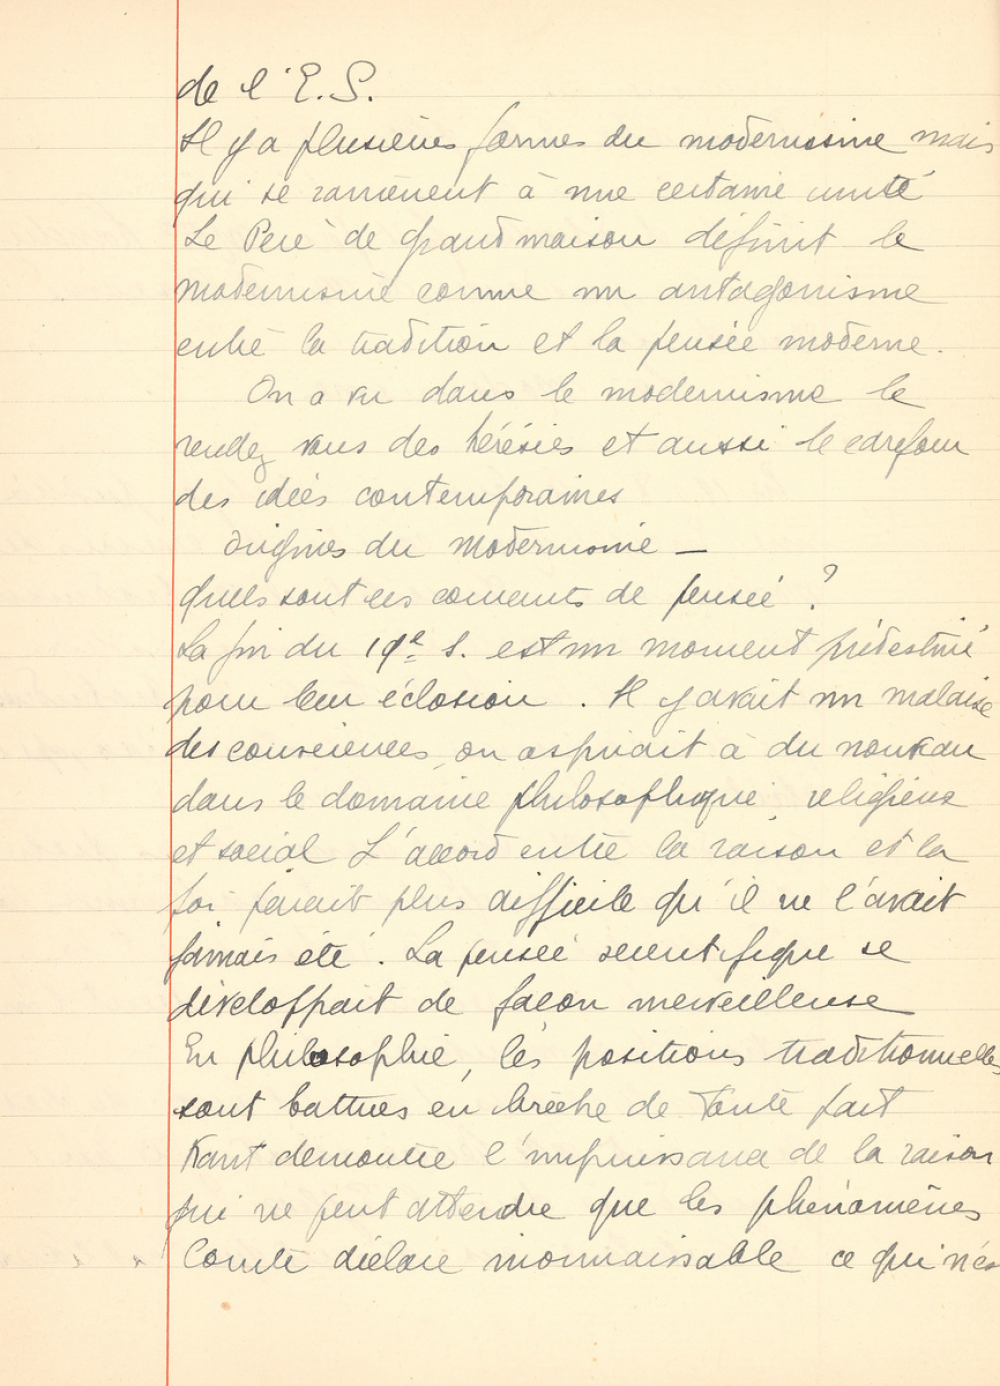 de l'E.S.
Il y a plusieurs formes du modernisme mais
qui se ramènent à une certaine unité
Le Père de Grandmaison définit le
modernisme comme un antagonisme
entre la tradition et la pensée moderne.
On a vu dans le modernisme le
rendez vous des hérésies et aussi le carrefour
des idées contemporaines
Origines du Modernisme —
Quels sont ces courants de pensée ?
La fin du 19e s. est un moment prédestiné
pour leur éclosion. Il y avait un malaise
des consciences, on aspirait à du nouveau
dans le domaine philosophique, religieux
et social L'accord entre la raison et la
foi paraît plus difficile qu'il ne l'avait
jamais été. La pensée scientifique se
développait de façon merveilleuse
En philosophie, les positions traditionnelles
sont battues en brèche de toute part
Kant démontre l'impuissance de la raison
qui ne peut attendre que les phénomènes
Comte déclare inconnaissable ce qui n'es